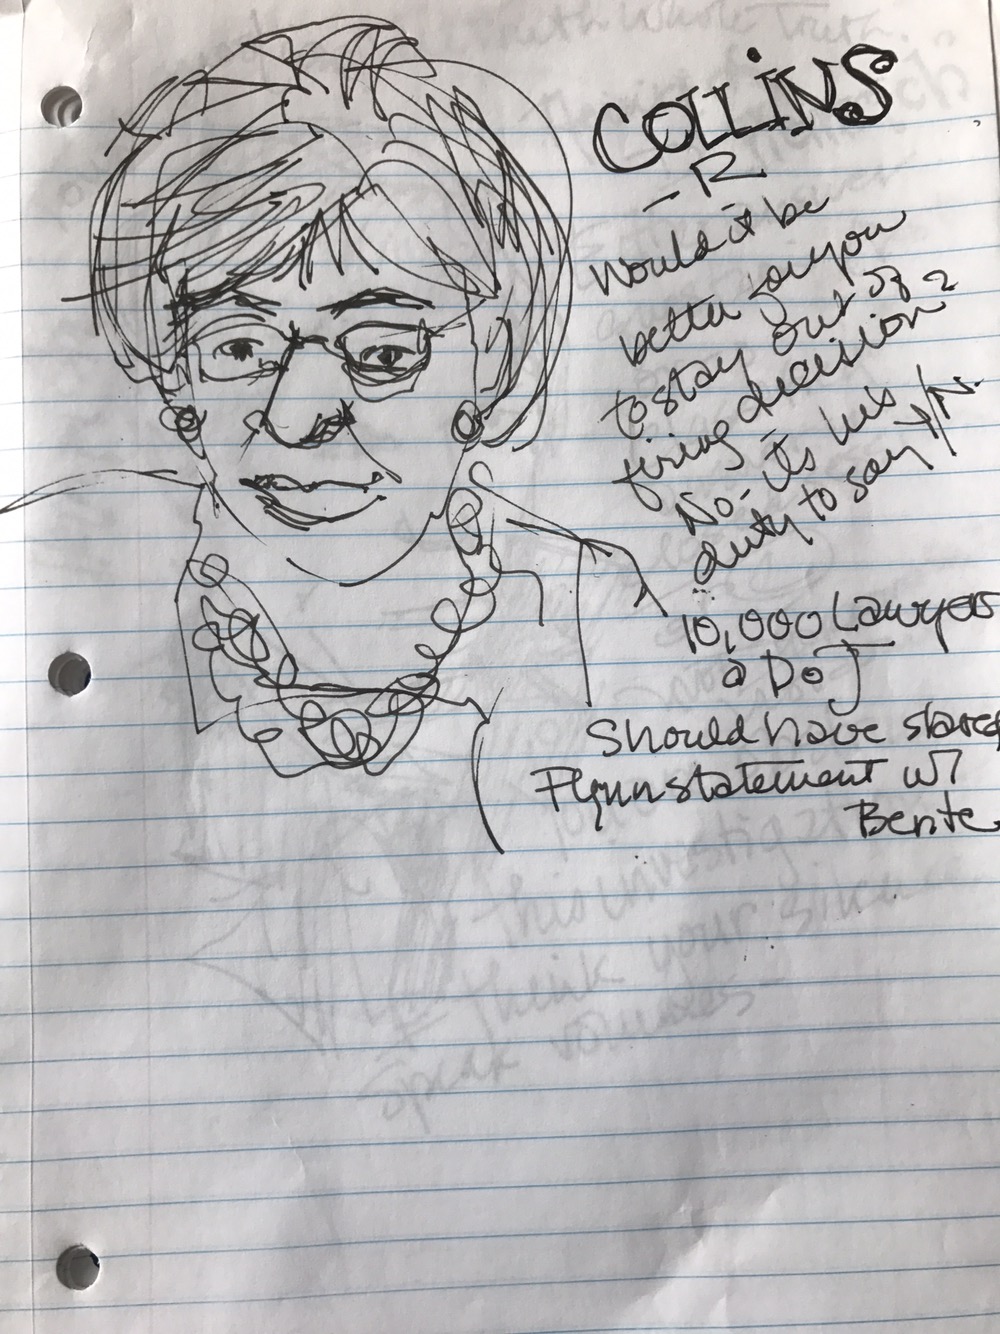 COLLINS
- R
Would it be
better for you
to stay out of
firing decision?
No - its his
duty to say Y/N.
10,000 Lawyers
@ DOJ
Should have shared
Flynn statement w/
Bente
this investig
I think your silence
speak volumes